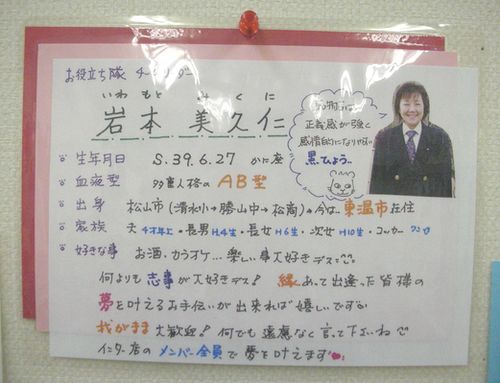 お役立ち隊 チームリーダー
いわもと みくに
岩本 美久仁
動物占いは
正義感が強く
感情的になりやすい
黒ひょう...
生年月日 S.39.6.27 かに座
血液型 多重人格の AB型
出身 松山市(清水小→勝山中→松商)→今は東温市在住
家族 夫 4才年上・長男 H.4生・長女 H6生・次女 H10生・コッカー ワンコ
好きな事 お酒、カラオケ...楽しい事大好きデス
何よりも志事が大好きデス! 縁あって出逢った皆様の
夢を叶えるお手伝いが出来れば嬉しいです
我がまま大歓迎! 何でも遠慮なく言って下さいね
インター店のメンバー全員で夢を叶えます